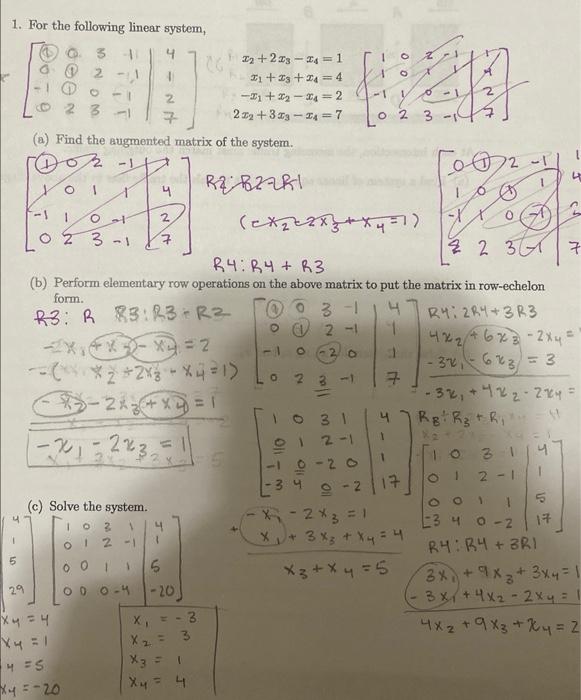 1. For the following linear system,
x₂ + 2x₃ − x₄ = 1
x₁ + x₃ + x₄ = 4
−x₁ + x₂ − x₄ = 2
2x₂ + 3x₃ − x₄ = 7
1 0 3 -1 | 4
0 1 2 -1 | 1
-1 1 0 -1 | 2
0 2 3 -1 | 7
1 0 2 -1 | 1
1 0 1 1 | 4
-1 1 0 -1 | 2
0 2 3 -1 | 7
(a) Find the augmented matrix of the system.
1 0 2 -1 | 1
1 0 1 1 | 4
-1 1 0 -1 | 2
0 2 3 -1 | 7
R2: R2-R1
(-x₂-2x₃+x₄=1)
R4: R4 + R3
0 1 2 -1 | 1
1 0 1 | 4
-1 1 0 -1 | 2
2 2 3 -1 | 7
(b) Perform elementary row operations on the above matrix to put the matrix in row-echelon
form.
R3: R R3: R3 - R2
-x₁ + x₂ - x₄ = 2
-( x₂ + 2x₃ - x₄ = 1)
-x₂ - 2x₃ + x₄ = 1
-x₁ - 2x₃ = 1
1 0 3 -1 | 4
0 1 2 -1 | 1
-1 0 -2 0 | 1
0 2 3 -1 | 7
R4: 2R4 + 3R3
4x₂ + 6x₃ - 2x₄ =
-3x₁ - 6x₃ = 3
-3x₁ + 4x₂ - 2x₄ =
1 0 3 1 | 4
0 1 2 -1 | 1
-1 0 -2 0 | 1
-3 4 0 -2 | 17
R3: R3 + R1
1 0 3 1 | 4
0 1 2 -1 | 1
0 0 1 1 | 5
-3 4 0 -2 | 17
-x₁ - 2x₃ = 1
+ x₁ + 3x₃ + x₄ = 4
x₃ + x₄ = 5
R4: R4 + 3R1
3x₁ + 9x₃ + 3x₄ = 1
-3x₁ + 4x₂ - 2x₄ = 1
4x₂ + 9x₃ + x₄ = 2
(c) Solve the system.
4
1
5
29
1 0 3 1 | 4
0 1 2 -1 | 1
0 0 1 1 | 5
0 0 0 -4 | -20
x₄ = 4
x₄ = 1
4 = 5
x₄ = -20
x₁ = -3
x₂ = 3
x₃ = 1
x₄ = 4